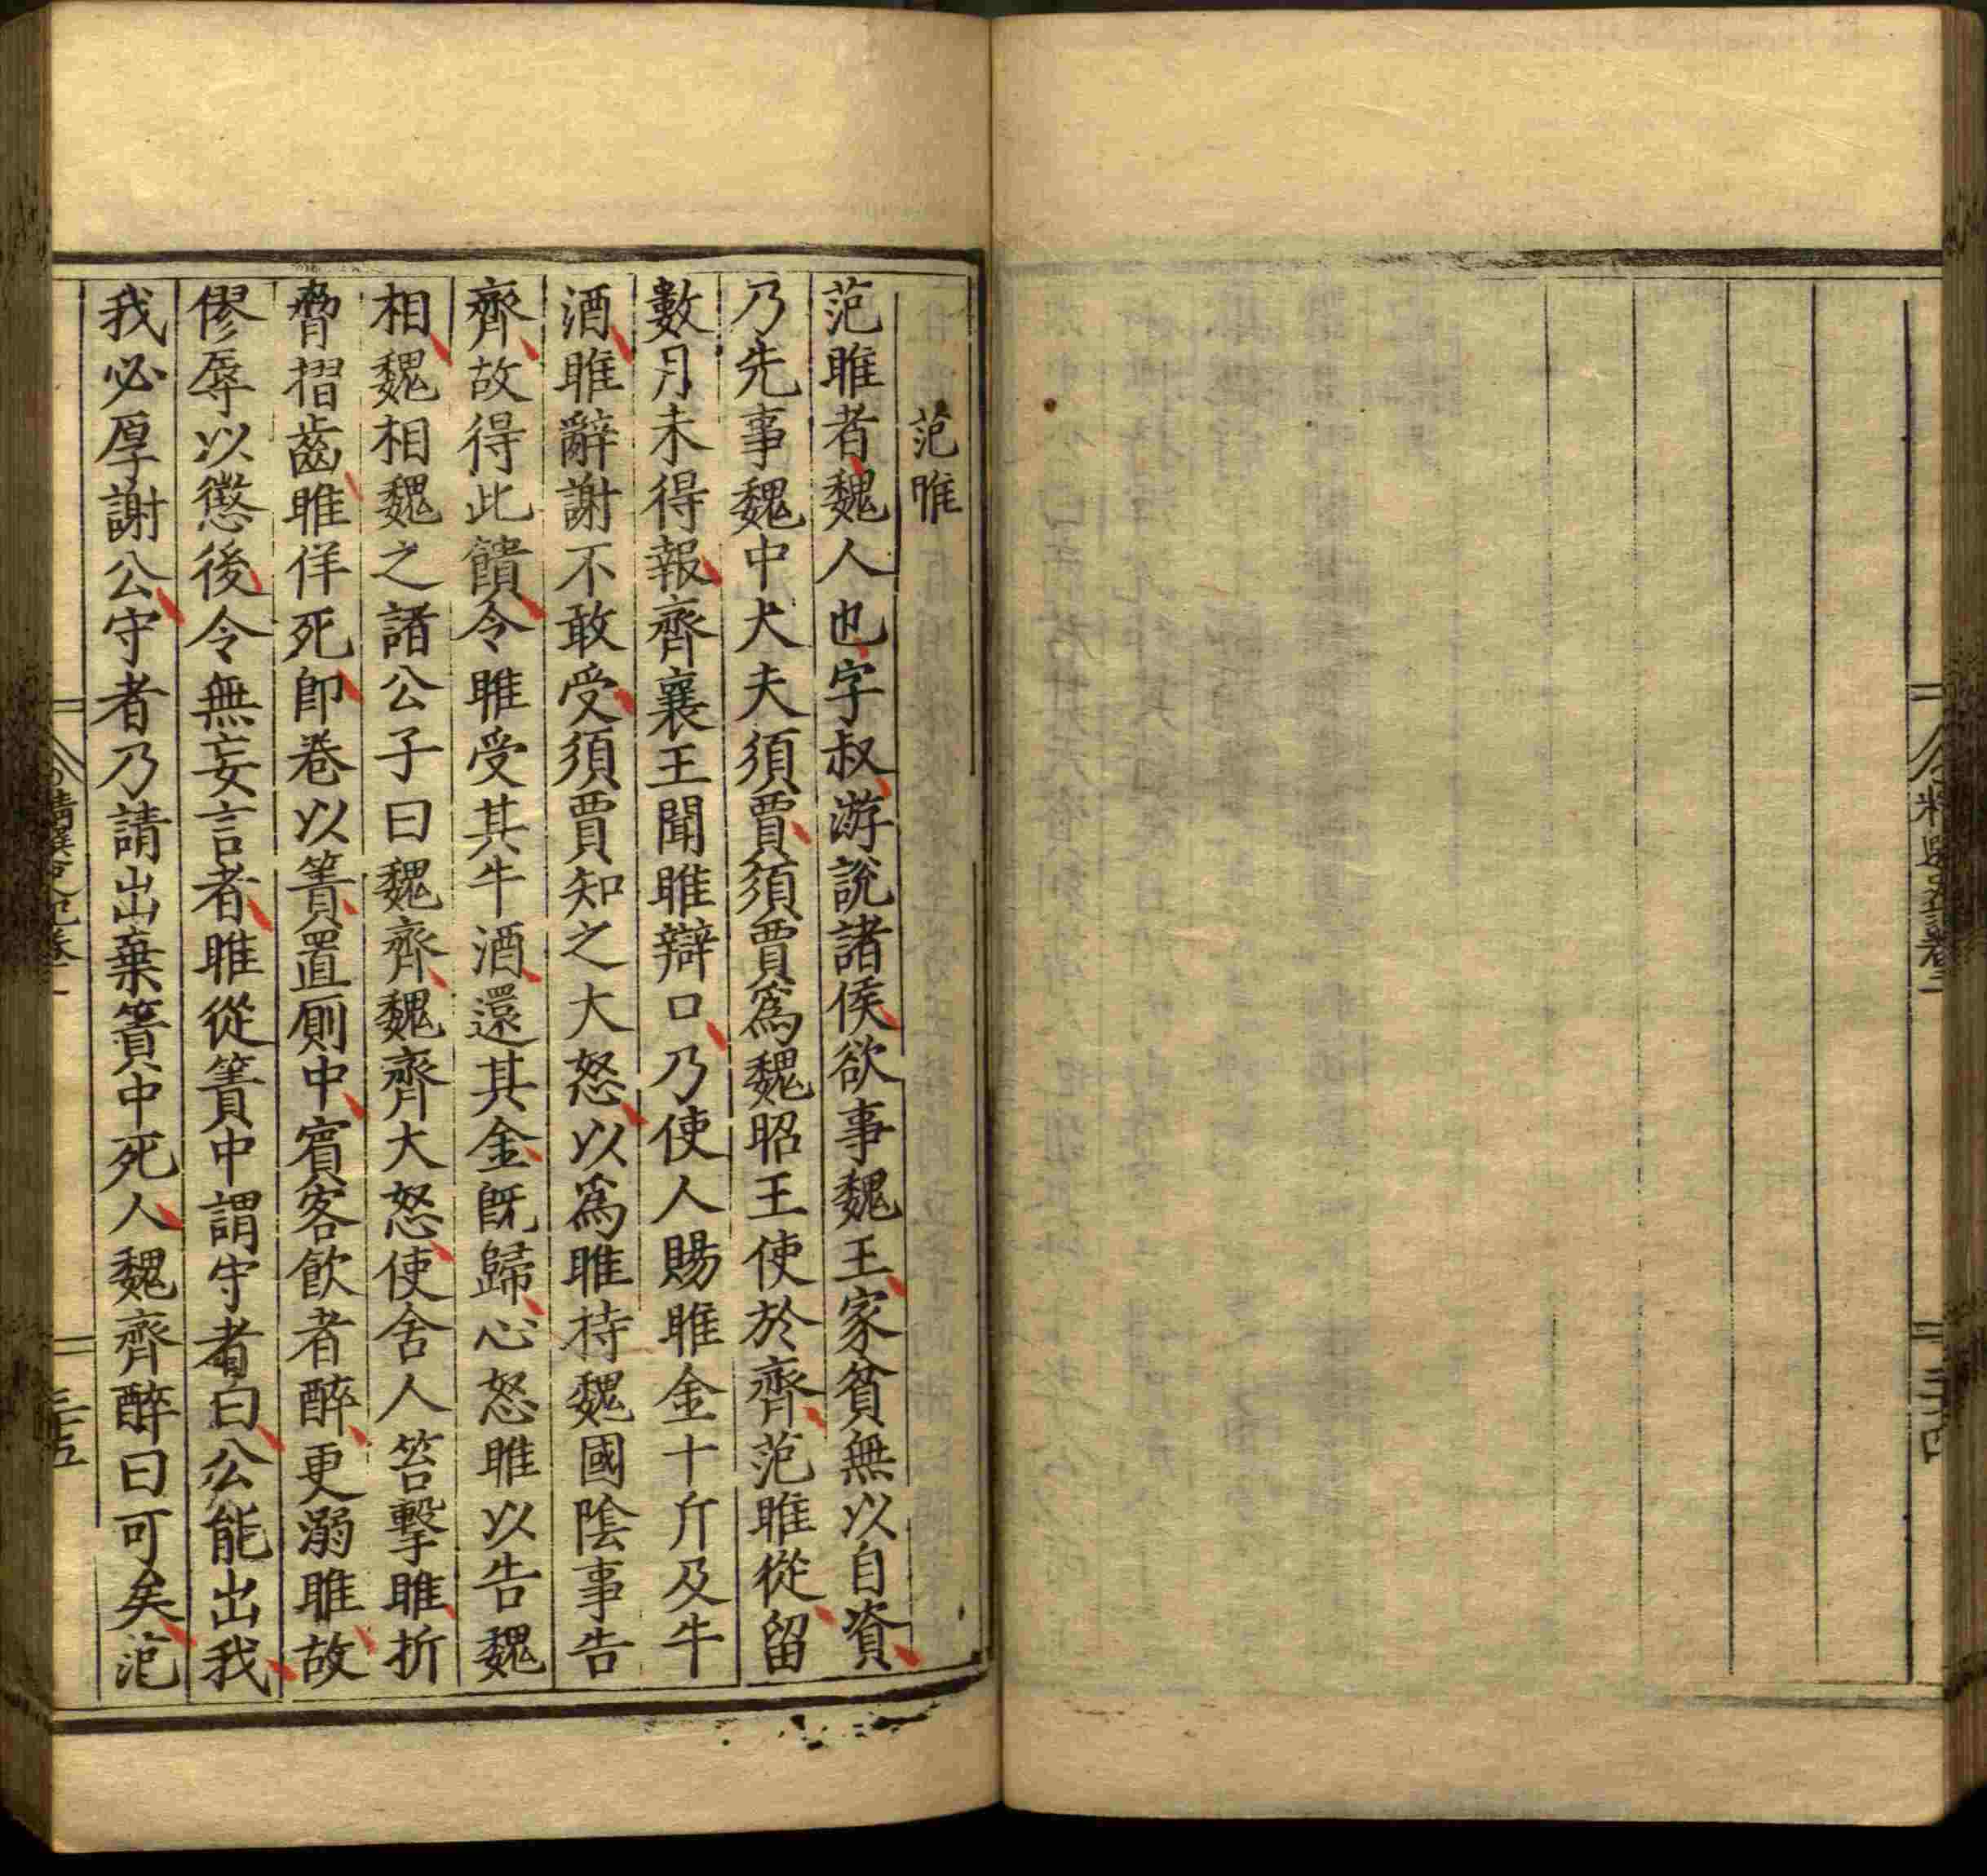 范雎
范雎者魏人也字叔游說諸侯欲事魏王家貧無以自資
乃先事魏中大夫須賈須賈爲魏昭王使於齊范雎從留
數月未得報齊襄王聞雎辯口乃使人賜雎金十斤及牛
酒雎辭謝不敢受須賈知之大怒以爲雎持魏國陰事告
齊故得此饋令雎受其牛酒還其金旣歸心怒雎以告魏
相魏相魏之諸公子曰魏齊魏齊大怒使舍人笞擊雎折
脅摺齒雎佯死卽卷以簀置厠中賓客飮者醉更溺雎故
僇辱以懲後令無妄言者雎從簀中謂守者曰公能出我
我必厚謝公守者乃請出棄簀中死人魏齊醉曰可矣范
三十五